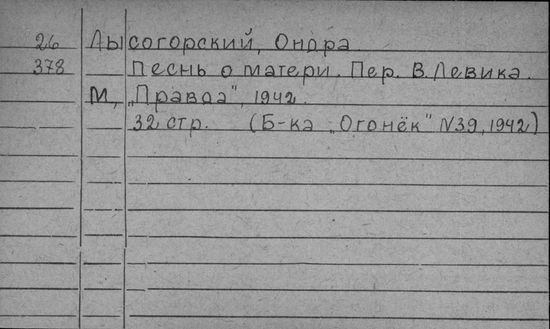 26 Лысогорский, Ондра
378 Песнь о матери. Пер. В. Левика.
М, „Правда", 1942.
32 стр. (Б-ка „Огонёк" N39, 1942)